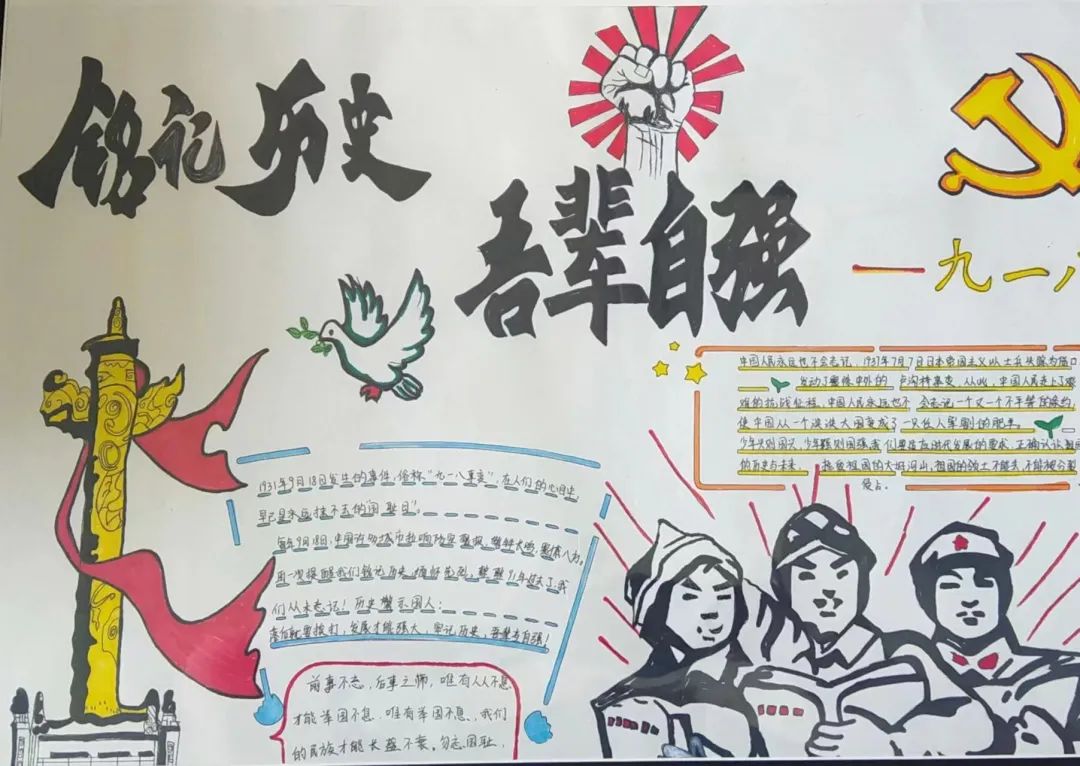 铭记历史
吾辈自强
九一八
中国人民永远也不会忘记，1937年7月7日日本帝国主义以士兵失踪为借口
发动了震惊中外的 卢沟桥事变，从此，中国人民走上了艰
难的抗战征程，中国人民永远也不 会忘记一个又一个不平等的条约，
使中国从一个泱泱大国变成了一只任人宰割的肥羊。
少年兴则国兴，少年强则国强，我们要适应时代发展的要求，正确认认祖国
的历史与未来 拖鱼祖国的大好河山，祖国的领土不能丢，不能被分裂
侵占。
1931年9月18日发生的事件，俗称“九一八事变”，在人们的心目中，
早已是永远抹不去的“国耻日”。
每年9月18日，中国许多城市都响防空警报，警钟大鸣，
用一次提醒我们铭记历史 缅怀先烈， 91年过去了，我
们从未忘记！历史警示国人：
落后就要挨打，发展才能强大，牢记历史，吾辈当自强！
前事不忘，后事之师，唯有人人不息
才能举国不息，唯有举国不息，我们
的民族才能长盛不衰，勿忘国耻，